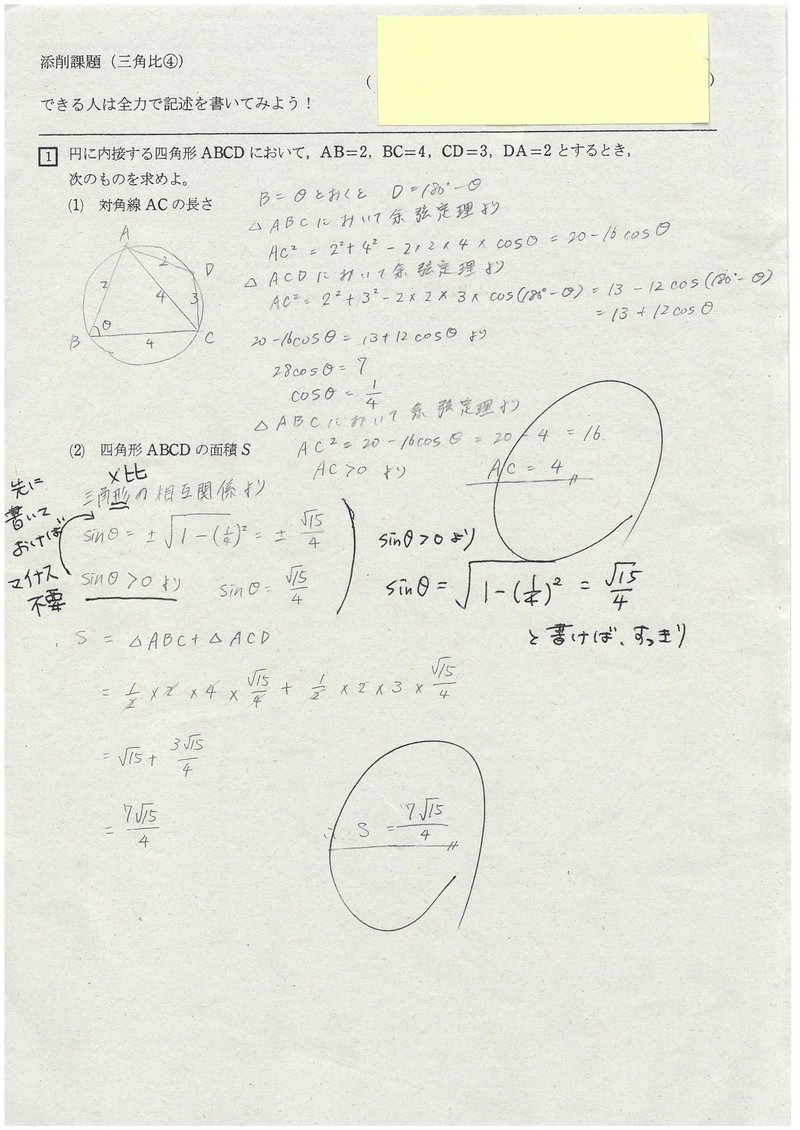 添削課題（三角比④）
（　　　）
できる人は全力で記述を書いてみよう！
1 円に内接する四角形 ABCD において，AB＝2，BC＝4，CD＝3，DA＝2 とするとき，
次のものを求めよ。
(1) 対角線 AC の長さ
B = θ とおくと D = 180° − θ
△ABCにおいて余弦定理より
AC² = 2² + 4² − 2×2×4×cosθ = 20 − 16cosθ
△ACDにおいて余弦定理より
AC² = 2² + 3² − 2×2×3×cos(180° − θ) = 13 − 12cos(180° − θ)
= 13 + 12cosθ
20 − 16cosθ = 13 + 12cosθ より
28cosθ = 7
cosθ = 1/4
△ABCにおいて余弦定理より
AC² = 20 − 16cosθ = 20 − 4 = 16
AC > 0 より AC = 4
A
2
D
2
4
3
B
θ
4
C
(2) 四角形 ABCD の面積 S
×比
三角形の相互関係より
sinθ = ±√(1 − (1/4)²) = ± √15/4
sinθ > 0 より sinθ = √15/4
先に
書いて
おけば
マイナス
不要
sinθ > 0 より
sinθ = √(1 − (1/4)²) = √15/4
と書けば、すっきり
S = △ABC + △ACD
= 1/2 × 2 × 4 × √15/4 + 1/2 × 2 × 3 × √15/4
= √15 + 3√15/4
= 7√15/4
∴ S = 7√15/4